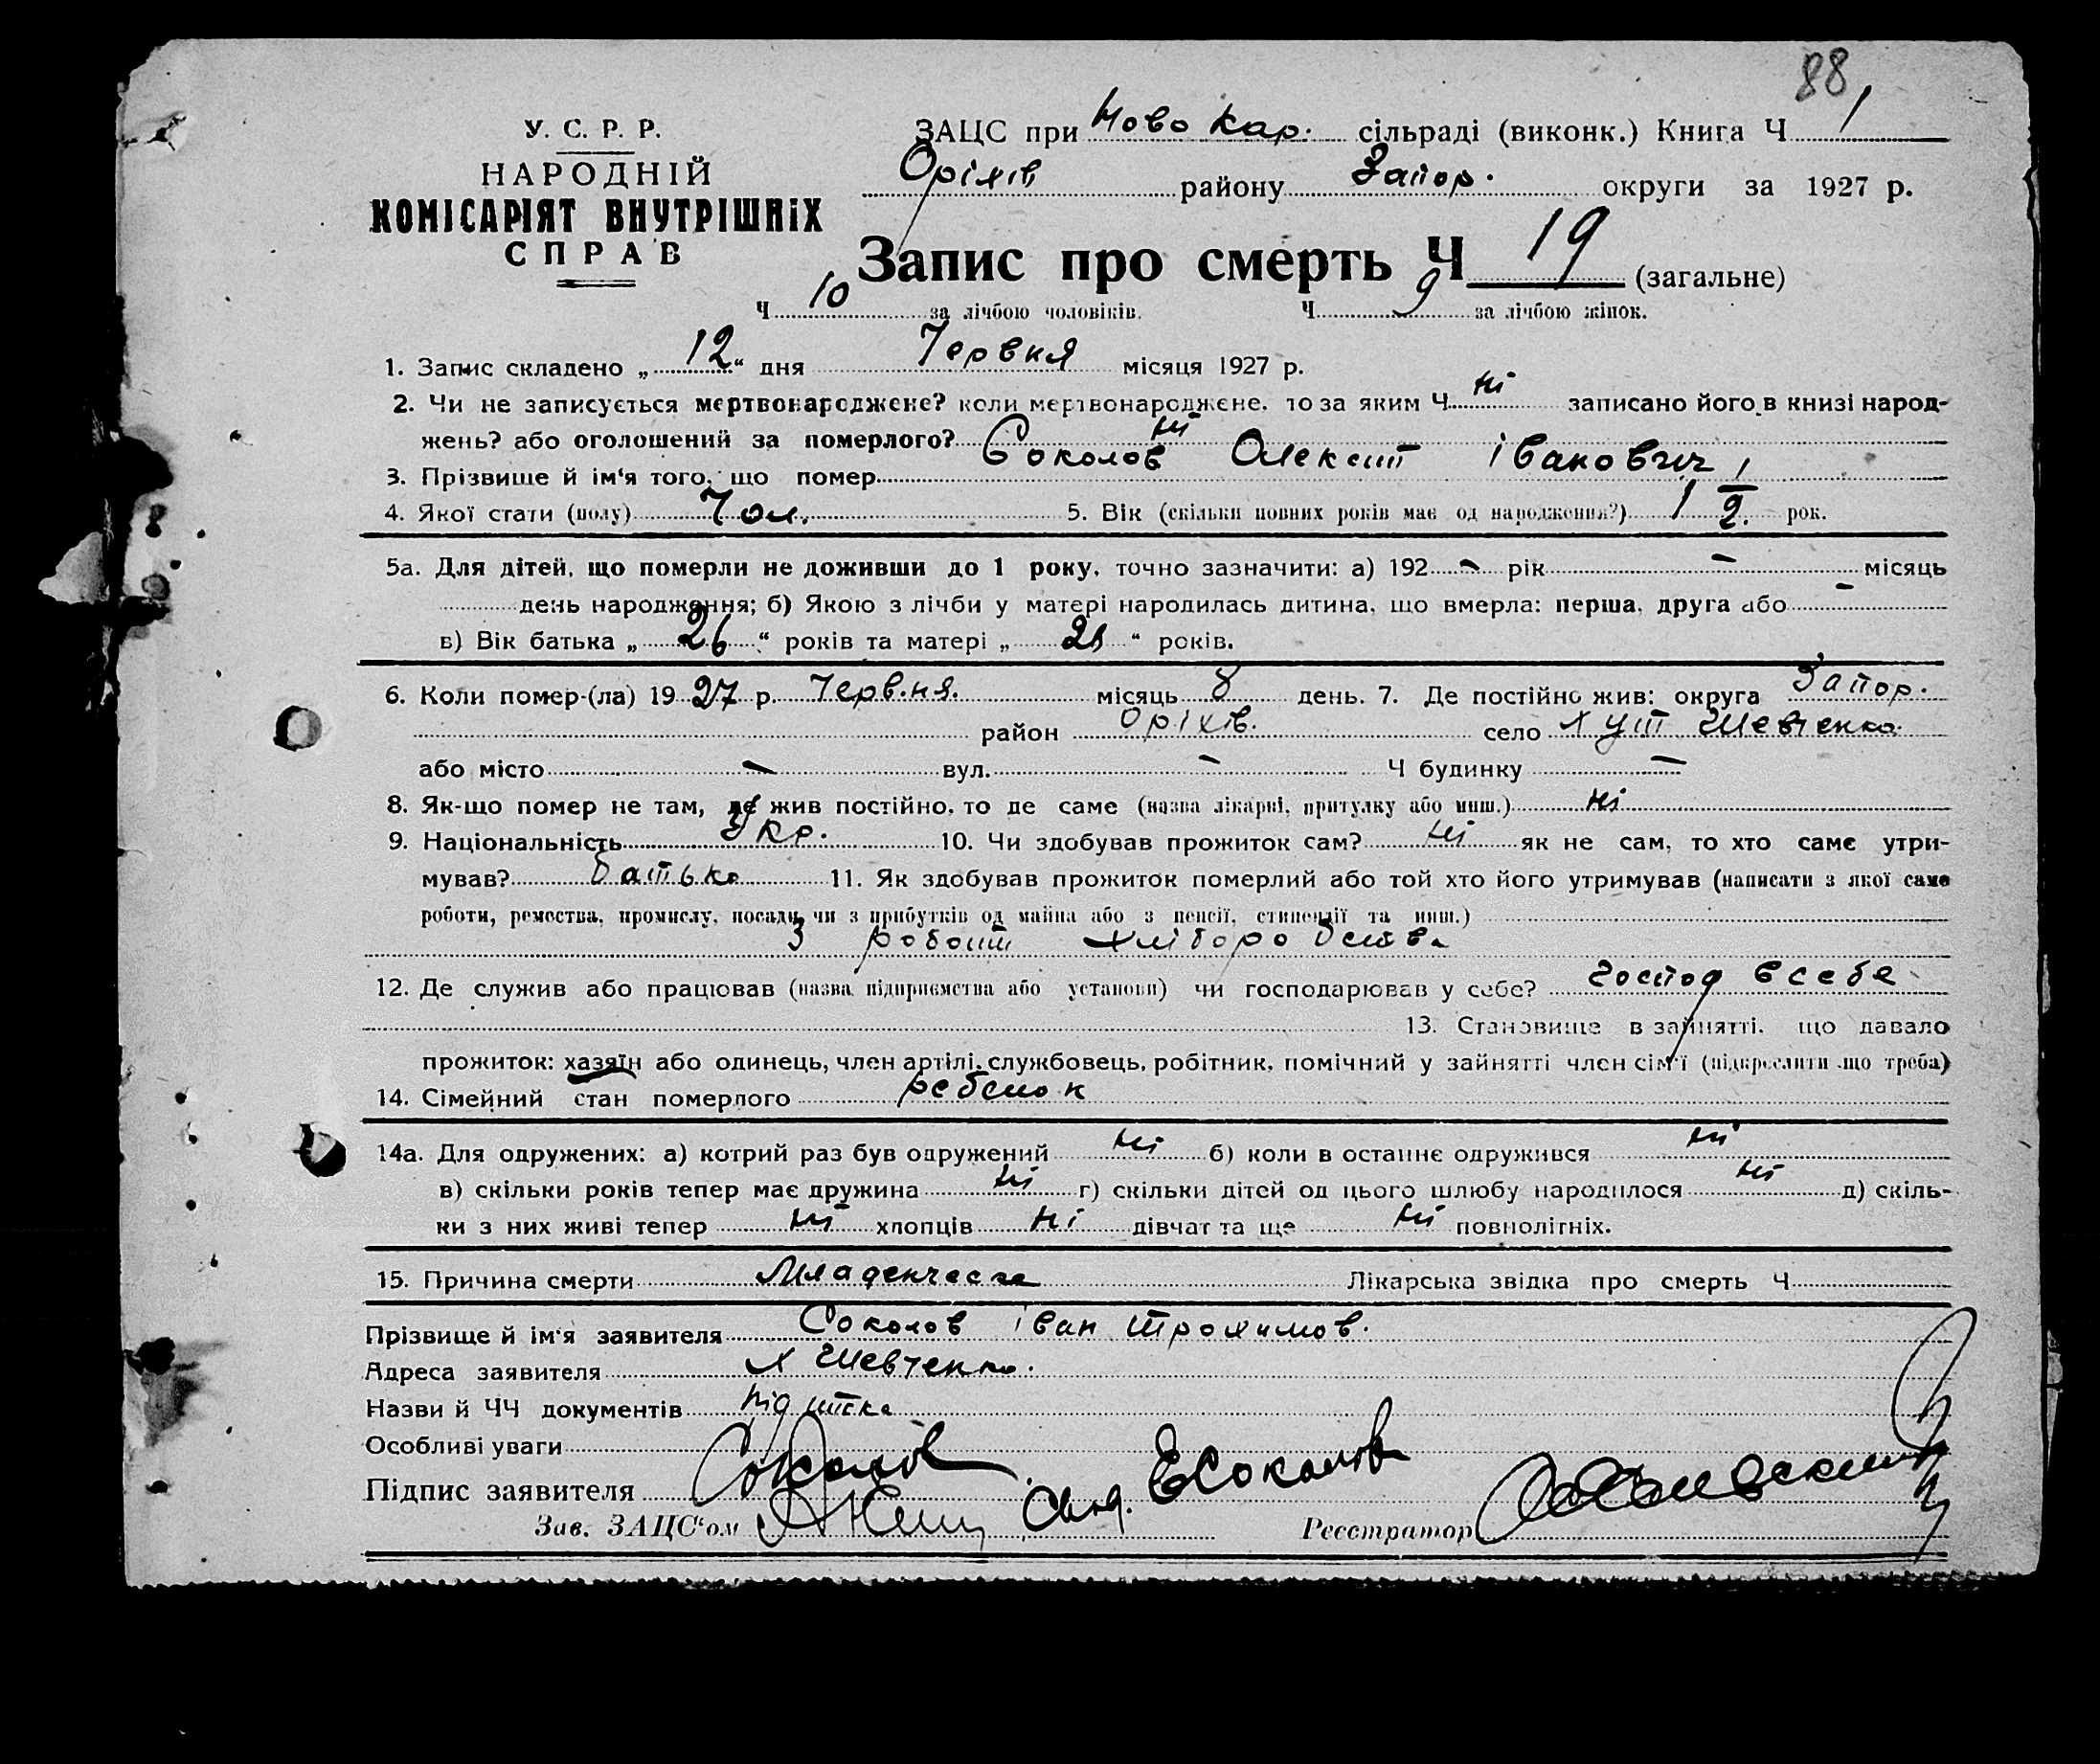 88
У. С. Р. Р.
НАРОДНІЙ
КОМІСАРІЯТ ВНУТРІШНІХ
СПРАВ
ЗАЦС при Ново Кар. сільраді (виконк.) Книга Ч 1
Оріхів району Запор. округи за 1927 р.
Запис про смерть Ч 19 (загальне)
Ч 10 за лічбою чоловіків. Ч 9 за лічбою жінок.
1. Запис складено „ 12 “ дня Червня місяця 1927 р.
2. Чи не записується мертвонароджене? коли мертвонароджене, то за яким Ч ні записано його в книзі народ-
жень? або оголошений за померлого? ні
3. Прізвище й ім‘я того, що помер Соколов Олексій Іванович
4. Якої стати (полу) Чол. 5. Вік (скільки повних років має од народження?) 1 1/2 рок.
5а. Для дітей, що померли не доживши до 1 року, точно зазначити: а) 192 - рік - місяць
день народження; б) Якою з лічби у матері народилась дитина, що вмерла: перша, друга або -
в) Вік батька „ 26 “ років та матері „ “ років.
6. Коли помер-(ла) 19 27 р. Червня. місяць 8 день. 7. Де постійно жив: округа Запор.
район Оріхів. село Хут Шевченко
або місто - вул. - Ч будинку -
8. Як-що помер не там, де жив постійно, то де саме (назва лікарні, притулку або инш.) ні
9. Національність Укр. 10. Чи здобував прожиток сам? ні як не сам, то хто саме утри-
мував? батько 11. Як здобував прожиток померлий або той хто його утримував (написати з якої саме
роботи, ремества, промислу, посади чи з прибутків од майна або з пенсії, стипендії та инш.)
З робот хліборобства
12. Де служив або працював (назва підприємства або установи) чи господарював у себе? господ в себе
13. Становище в зайнятті, що давало
прожиток: хазяїн або одинець, член артілі, службовець, робітник, помічний у зайнятті член сім‘ї (підкреслити що треба)
14. Сімейний стан померлого ребенок
14а. Для одружених: а) котрий раз був одружений ні б) коли в останнє одружився ні
в) скільки років тепер має дружина ні г) скільки дітей од цього шлюбу народилося ні д) скіль-
ки з них живі тепер ні хлопців ні дівчат та ще ні повнолітніх.
15. Причина смерти Младенческа Лікарська звідка про смерть Ч
Прізвище й ім‘я заявителя Соколов Іван Трохимов.
Адреса заявителя Х Шевченко.
Назви й ЧЧ документів
Особливі уваги
Підпис заявителя Соколов Е Соколов
Зав. ЗАЦС‘ом Реєстратор